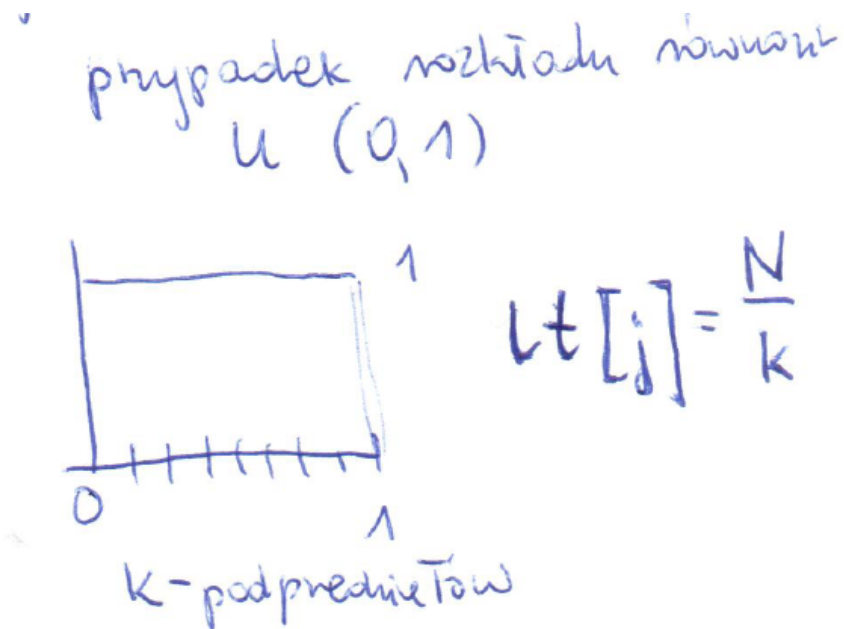 przypadek rozkładu równom
U (0,1)
1
lt[j] = N/k
0
1
k-podprzedziałów